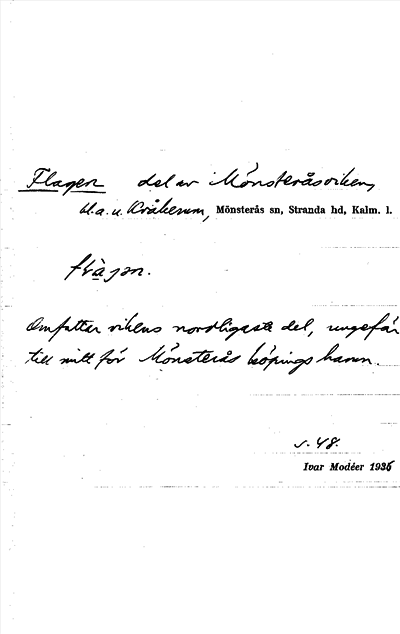 Flagen del av Mönsteråsviken,
bl.a. u. Kråkerum, Mönsterås sn, Stranda hd, Kalm. l.
Omfattar vikens nordligaste del, ungefär
till mitt för Mönsterås köpings hamn.
s. 48.
Ivar Modéer 1936